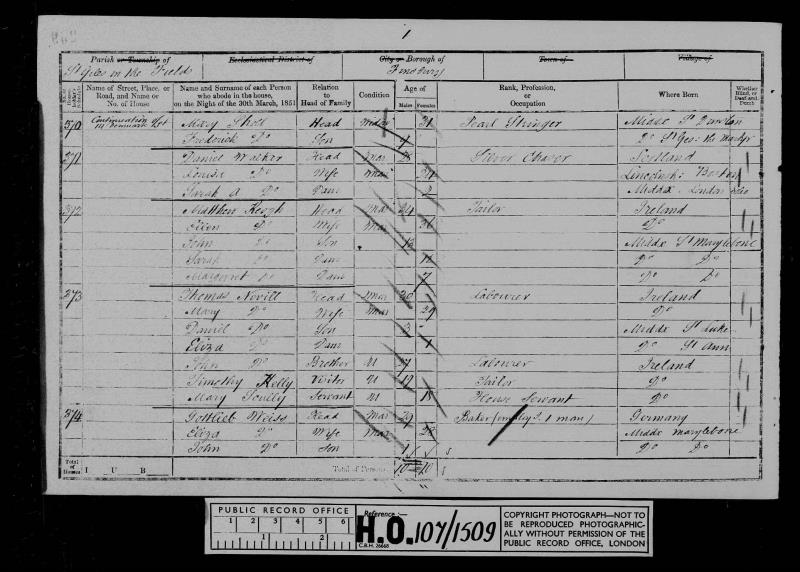 1
Parish or Township of
Ecclesiastical District of
City or Borough of
Town of
Village of
St Giles in the Fields
Finsbury
Name of Street, Place, or Road, and Name or No. of House
Name and Surname of each Person who abode in the house, on the Night of the 30th March, 1851
Relation to Head of Family
Condition
Age of
Males Females
Rank, Profession, or Occupation
Where Born
Whether Blind, or Deaf and Dumb
Continuation Head Widow 31 Pearl Stringer Middx St
Mary
Frederick Do Son Do St Geo: the Martyr
Daniel Walker Head Mar Scotland
Louisa Do Wife Mar Lincolnsh: Boston
Sarah A Do Daur Middx. London
Matthew Keogh Head Mar Tailor Ireland
Ellen Do Wife Mar 36 Do
John Do Son Middx St Marylebone
Sarah Do Daur Do Do
Margaret Do Daur 7 Do Do
273 Thomas Nevill Head Mar Labourer Ireland
Mary Do Wife Mar 29 Do
Daniel Do Son 3 Middx St Luke
Eliza Do Daur 1 Do St Ann
John Do Brother U 27 Labourer Ireland
Timothy Kelly Visitor U 19 Tailor Do
Mary Servant U 18 House Servant Do
Gottlieb Weiss Head Mar 29 Baker (employg. 1 man) Germany
Eliza Do Wife Mar 28 Middx Marylebone
John Do Son 1 Do Do
Total of Houses I U B Total of Persons 10 10
PUBLIC RECORD OFFICE
1 2 3 4 5 6
1 2
Reference:-
H.O. 107/1509
C.R.H. 26668
COPYRIGHT PHOTOGRAPH—NOT TO
BE REPRODUCED PHOTOGRAPHIC-
ALLY WITHOUT PERMISSION OF THE
PUBLIC RECORD OFFICE, LONDON